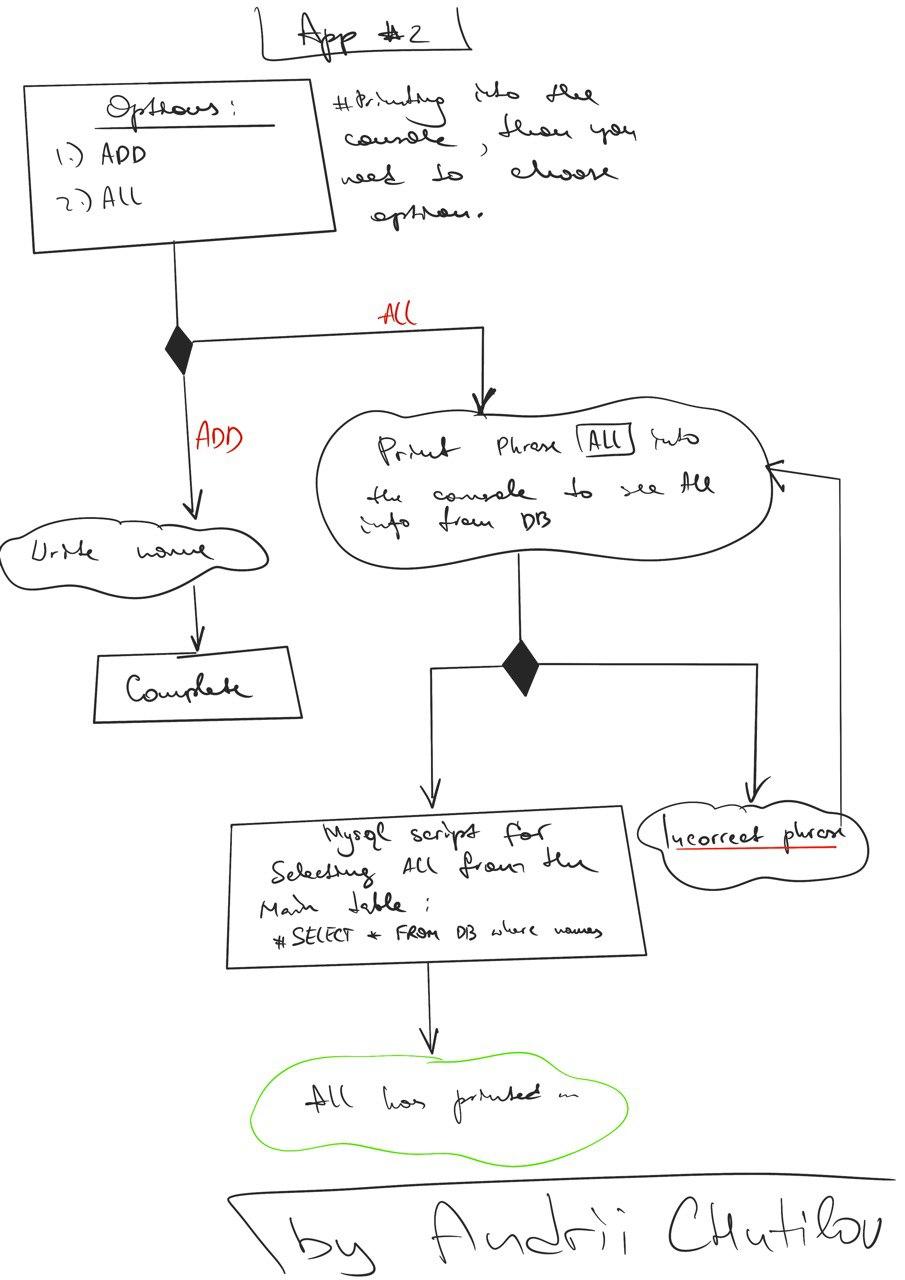 App #2
Options:
1.) ADD
2.) All
#Printing into the
console, than you
need to choose
option.
All
ADD
Print Phrase All into
the console to see All
info from DB
Write name
Complete
Mysql script for
Selecting All from the
Main table:
#SELECT * FROM DB where names
Incorrect phrase
All has printed ...
by Andrii CHutilov